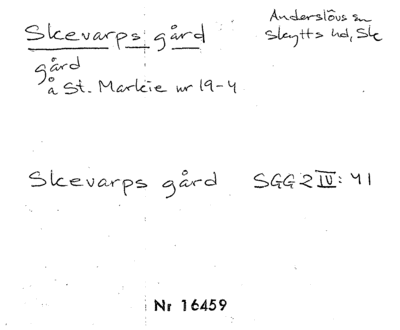 Skevarps gård
Anderslövs sn
Skytts hd, Sk
gård
å St. Markie nr 19-4
Skevarps gård SGG 2 IV: 41
Nr 16459